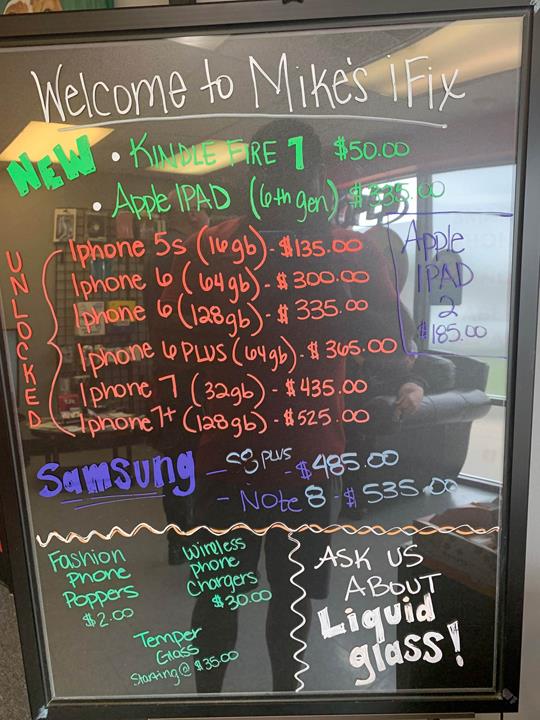 Welcome to Mike's iFix
NEW • KINDLE FIRE 7 $50.00
• Apple IPAD (6th gen) $335.00
UNLOCKED
Iphone 5s (16gb) - $135.00
Iphone 6 (64gb) - $300.00
Iphone 6 (128gb) - $335.00
Iphone 6 PLUS (64gb) - $365.00
Iphone 7 (32gb) - $435.00
Iphone 7+ (128gb) - $525.00
Apple
IPAD
2
$185.00
Samsung - S8 PLUS - $485.00
- Note 8 - $535.00
Fashion
Phone
Poppers
$2.00
Wireless
phone
Chargers
$30.00
Temper
Glass
Starting @ $35.00
ASK US
ABOUT
Liquid
glass!